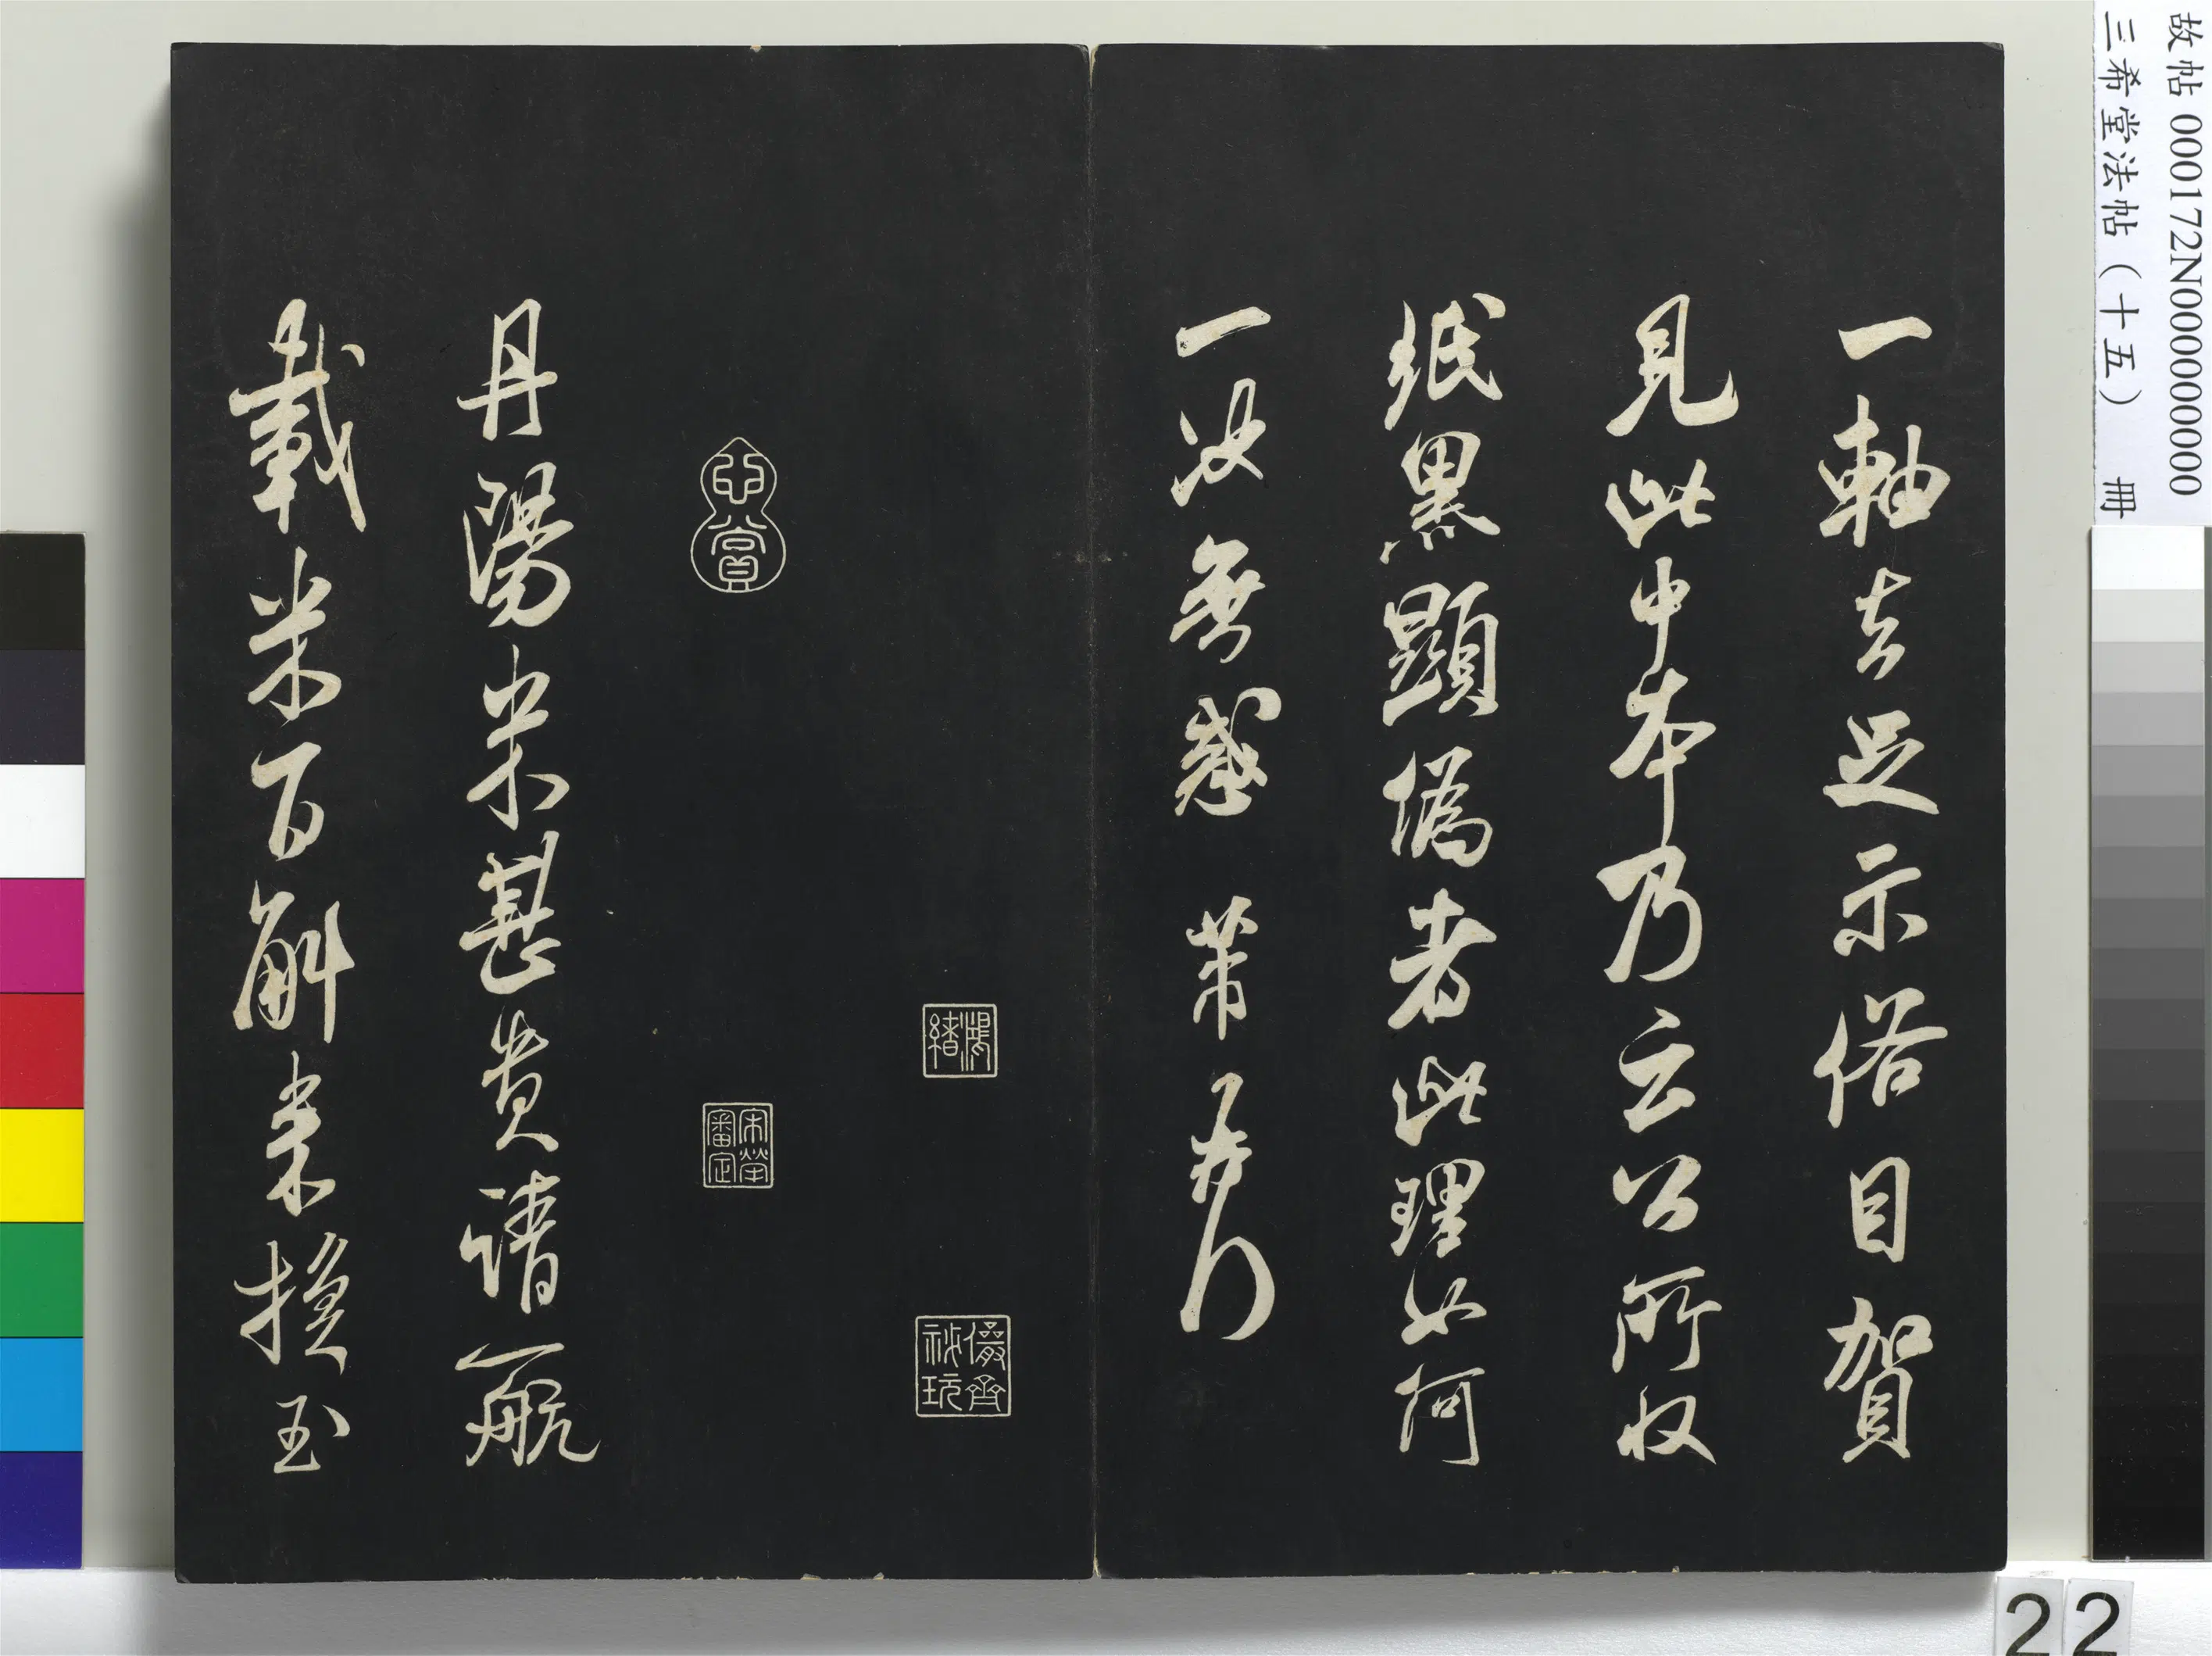 故帖 000172N000000000
三希堂法帖（十五） 冊
一軸去足示俗目賀
見此中本乃云公所收
紙黑顯偽者此理如何
一決無惑 芾頓首
鴻緒
儼齋祕玩
心賞
宋犖審定
丹陽米甚貴請一航
載米百斛來換玉
22